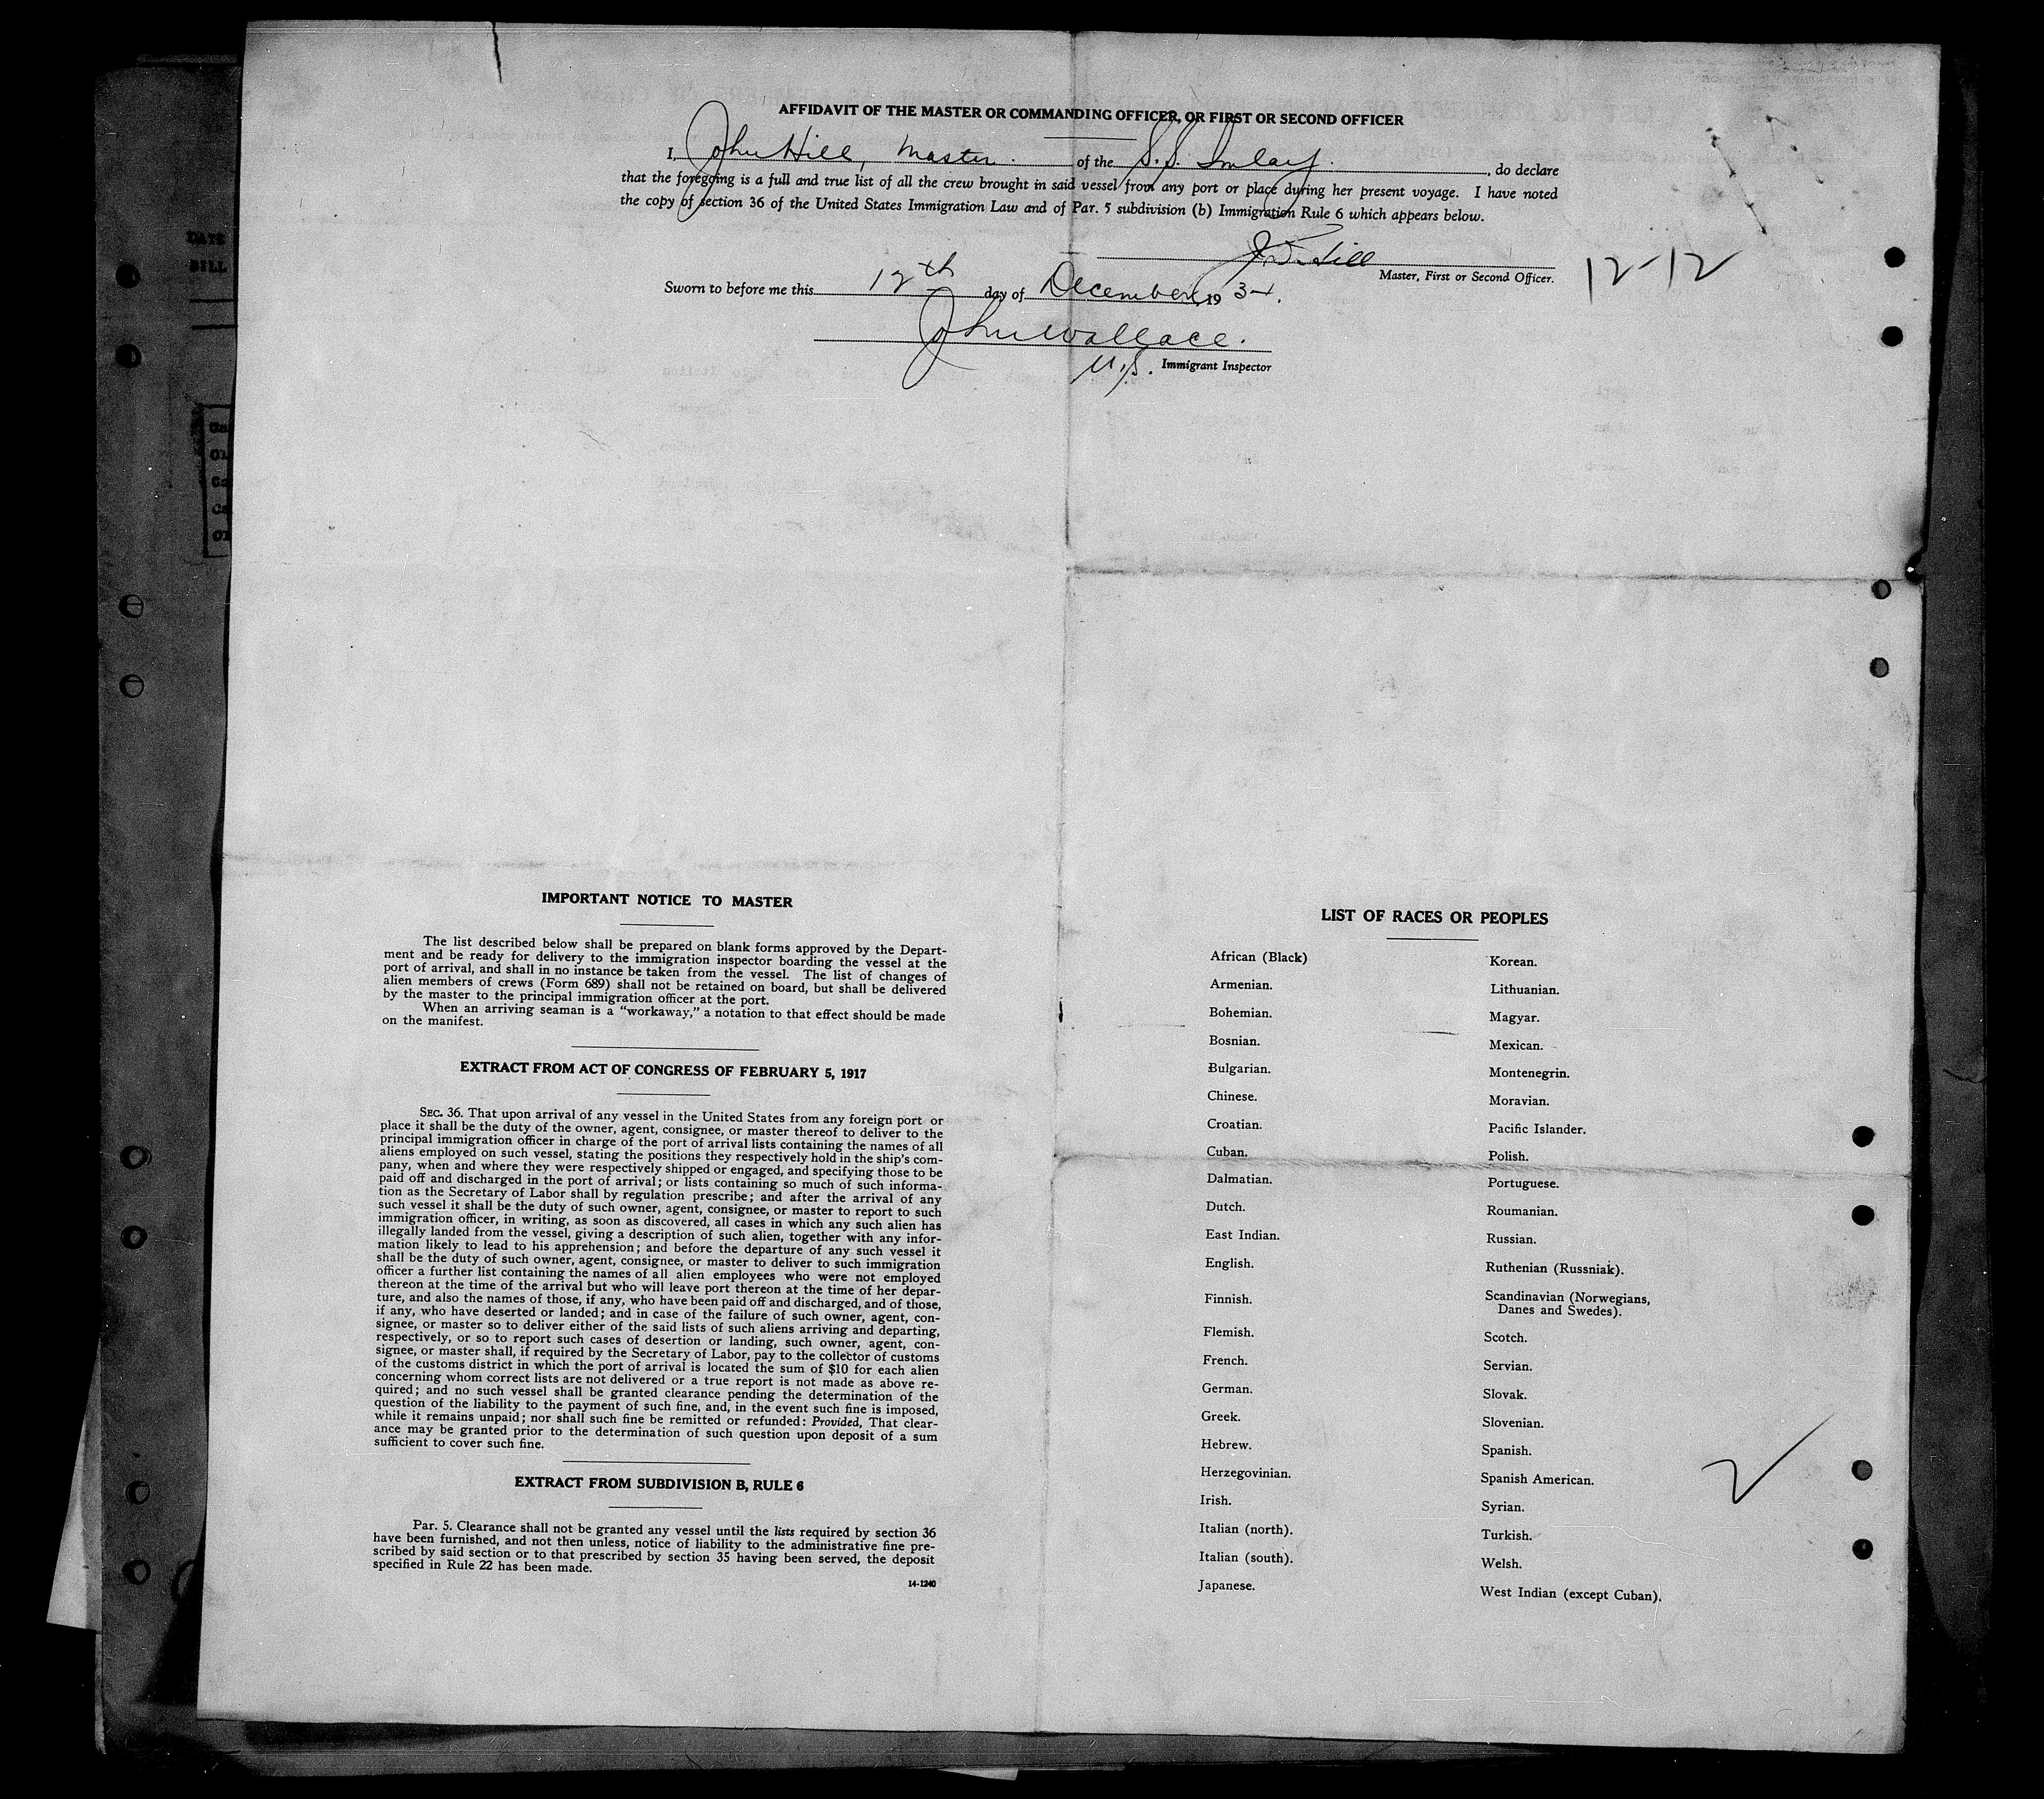 AFFIDAVIT OF THE MASTER OR COMMANDING OFFICER, OR FIRST OR SECOND OFFICER
I, John Hill, Master. of the S.S. Imlay. , do declare
that the foregoing is a full and true list of all the crew brought in said vessel from any port or place during her present voyage. I have noted
the copy of section 36 of the United States Immigration Law and of Par. 5 subdivision (b) Immigration Rule 6 which appears below.
Hill
Master, First or Second Officer.
12-12
Sworn to before me this 12th day of December, 1934.
John Wallace.
U.S. Immigrant Inspector
DATE
BILL
IMPORTANT NOTICE TO MASTER
The list described below shall be prepared on blank forms approved by the Depart-
ment and be ready for delivery to the immigration inspector boarding the vessel at the
port of arrival, and shall in no instance be taken from the vessel. The list of changes of
alien members of crews (Form 689) shall not be retained on board, but shall be delivered
by the master to the principal immigration officer at the port.
When an arriving seaman is a "workaway," a notation to that effect should be made
on the manifest.
EXTRACT FROM ACT OF CONGRESS OF FEBRUARY 5, 1917
SEC. 36. That upon arrival of any vessel in the United States from any foreign port or
place it shall be the duty of the owner, agent, consignee, or master thereof to deliver to the
principal immigration officer in charge of the port of arrival lists containing the names of all
aliens employed on such vessel, stating the positions they respectively hold in the ship's com-
pany, when and where they were respectively shipped or engaged, and specifying those to be
paid off and discharged in the port of arrival; or lists containing so much of such informa-
tion as the Secretary of Labor shall by regulation prescribe; and after the arrival of any
such vessel it shall be the duty of such owner, agent, consignee, or master to report to such
immigration officer, in writing, as soon as discovered, all cases in which any such alien has
illegally landed from the vessel, giving a description of such alien, together with any infor-
mation likely to lead to his apprehension; and before the departure of any such vessel it
shall be the duty of such owner, agent, consignee, or master to deliver to such immigration
officer a further list containing the names of all alien employees who were not employed
thereon at the time of the arrival but who will leave port thereon at the time of her depar-
ture, and also the names of those, if any, who have been paid off and discharged, and of those,
if any, who have deserted or landed; and in case of the failure of such owner, agent, con-
signee, or master so to deliver either of the said lists of such aliens arriving and departing,
respectively, or so to report such cases of desertion or landing, such owner, agent, con-
signee, or master shall, if required by the Secretary of Labor, pay to the collector of customs
of the customs district in which the port of arrival is located the sum of $10 for each alien
concerning whom correct lists are not delivered or a true report is not made as above re-
quired; and no such vessel shall be granted clearance pending the determination of the
question of the liability to the payment of such fine, and, in the event such fine is imposed,
while it remains unpaid; nor shall such fine be remitted or refunded: Provided, That clear-
ance may be granted prior to the determination of such question upon deposit of a sum
sufficient to cover such fine.
EXTRACT FROM SUBDIVISION B, RULE 6
Par. 5. Clearance shall not be granted any vessel until the lists required by section 36
have been furnished, and not then unless, notice of liability to the administrative fine pre-
scribed by said section or to that prescribed by section 35 having been served, the deposit
specified in Rule 22 has been made.
14-1240
LIST OF RACES OR PEOPLES
African (Black)
Armenian.
Bohemian.
Bosnian.
Bulgarian.
Chinese.
Croatian.
Cuban.
Dalmatian.
Dutch.
East Indian.
English.
Finnish.
Flemish.
French.
German.
Greek.
Hebrew.
Herzegovinian.
Irish.
Italian (north).
Italian (south).
Japanese.
Korean.
Lithuanian.
Magyar.
Mexican.
Montenegrin.
Moravian.
Pacific Islander.
Polish.
Portuguese.
Roumanian.
Russian.
Ruthenian (Russniak).
Scandinavian (Norwegians,
Danes and Swedes).
Scotch.
Servian.
Slovak.
Slovenian.
Spanish.
Spanish American.
Syrian.
Turkish.
Welsh.
West Indian (except Cuban).